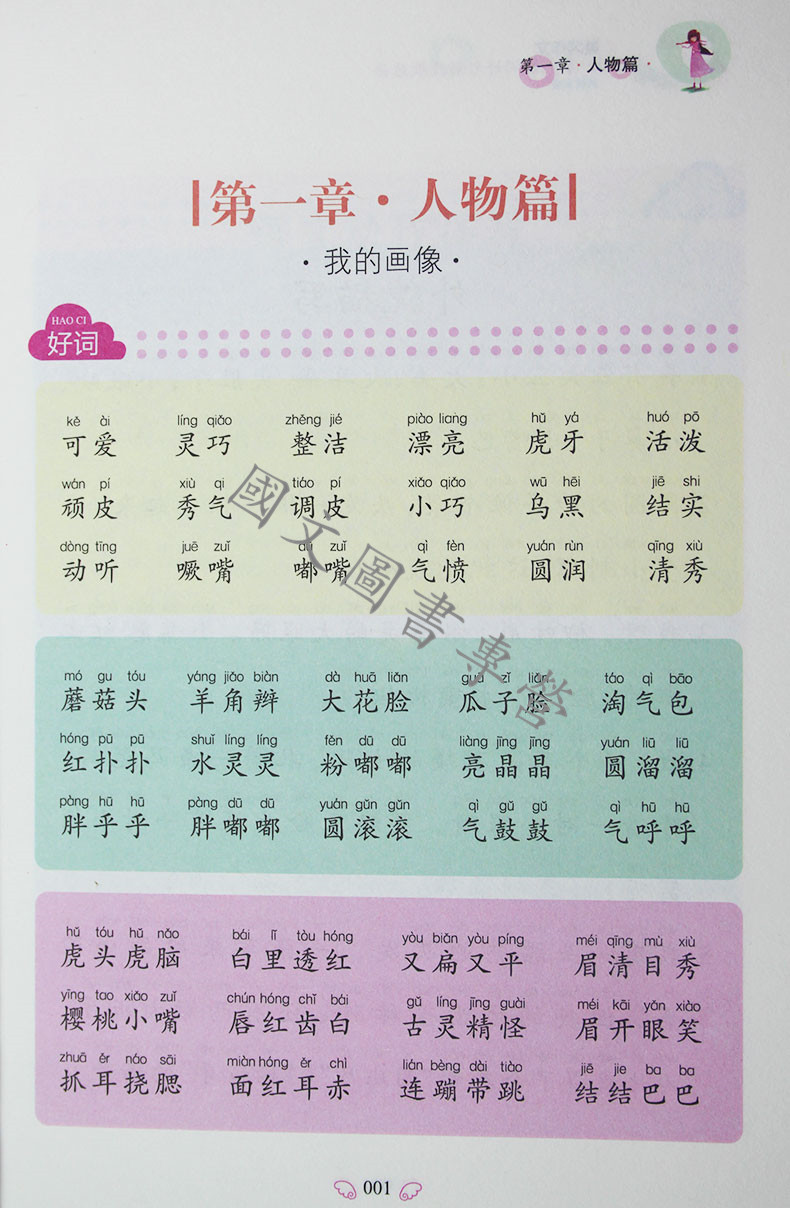 第一章·人物篇·
第一章·人物篇
·我的画像·
HAO CI
好词
kě ài líng qiǎo zhěng jié piào liang hǔ yá huó pō
可爱 灵巧 整洁 漂亮 虎牙 活泼
wán pí xiù qi tiáo pí xiǎo qiǎo wū hēi jiē shi
顽皮 秀气 调皮 小巧 乌黑 结实
dòng tīng juē zuǐ dū zuǐ qì fèn yuán rùn qīng xiù
动听 噘嘴 嘟嘴 气愤 圆润 清秀
mó gu tóu yáng jiǎo biàn dà huā liǎn guā zǐ liǎn táo qì bāo
蘑菇头 羊角辫 大花脸 瓜子脸 淘气包
hóng pū pū shuǐ líng líng fěn dū dū liàng jīng jīng yuán liū liū
红扑扑 水灵灵 粉嘟嘟 亮晶晶 圆溜溜
pàng hū hū pàng dū dū yuán gǔn gǔn qì gǔ gǔ qì hū hū
胖乎乎 胖嘟嘟 圆滚滚 气鼓鼓 气呼呼
hǔ tóu hǔ nǎo bái lǐ tòu hóng yòu biǎn yòu píng méi qīng mù xiù
虎头虎脑 白里透红 又扁又平 眉清目秀
yīng tao xiǎo zuǐ chún hóng chǐ bái gǔ líng jīng guài méi kāi yǎn xiào
樱桃小嘴 唇红齿白 古灵精怪 眉开眼笑
zhuā ěr náo sāi miàn hóng ěr chì lián bèng dài tiào jiē jie ba ba
抓耳挠腮 面红耳赤 连蹦带跳 结结巴巴
國文圖書專營
001